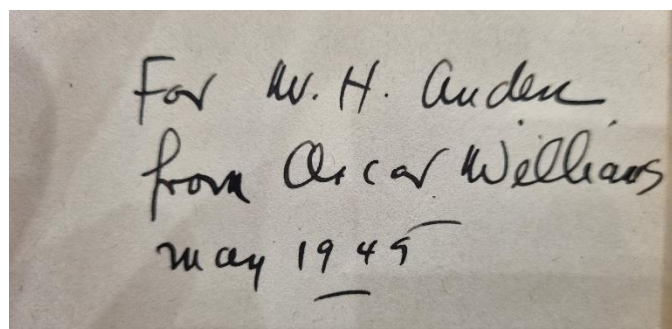 For W. H. Auden
from Oscar Williams
May 1945